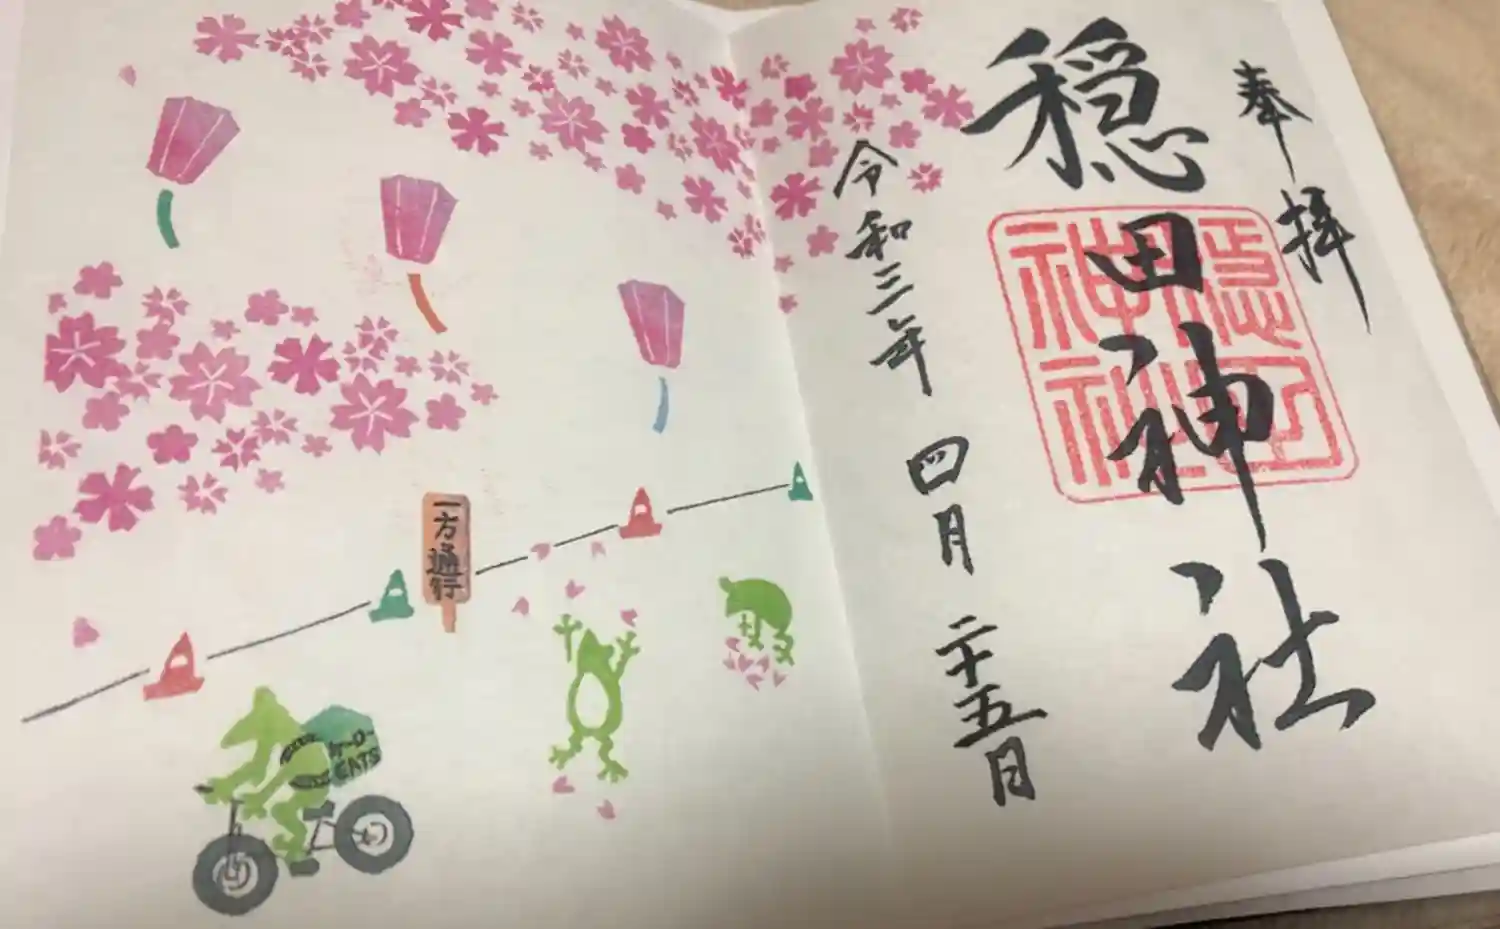 奉拝
穏田神社
穏田
神社
令和三年 四月 二十五日
一方通行
ケーロー
EATS